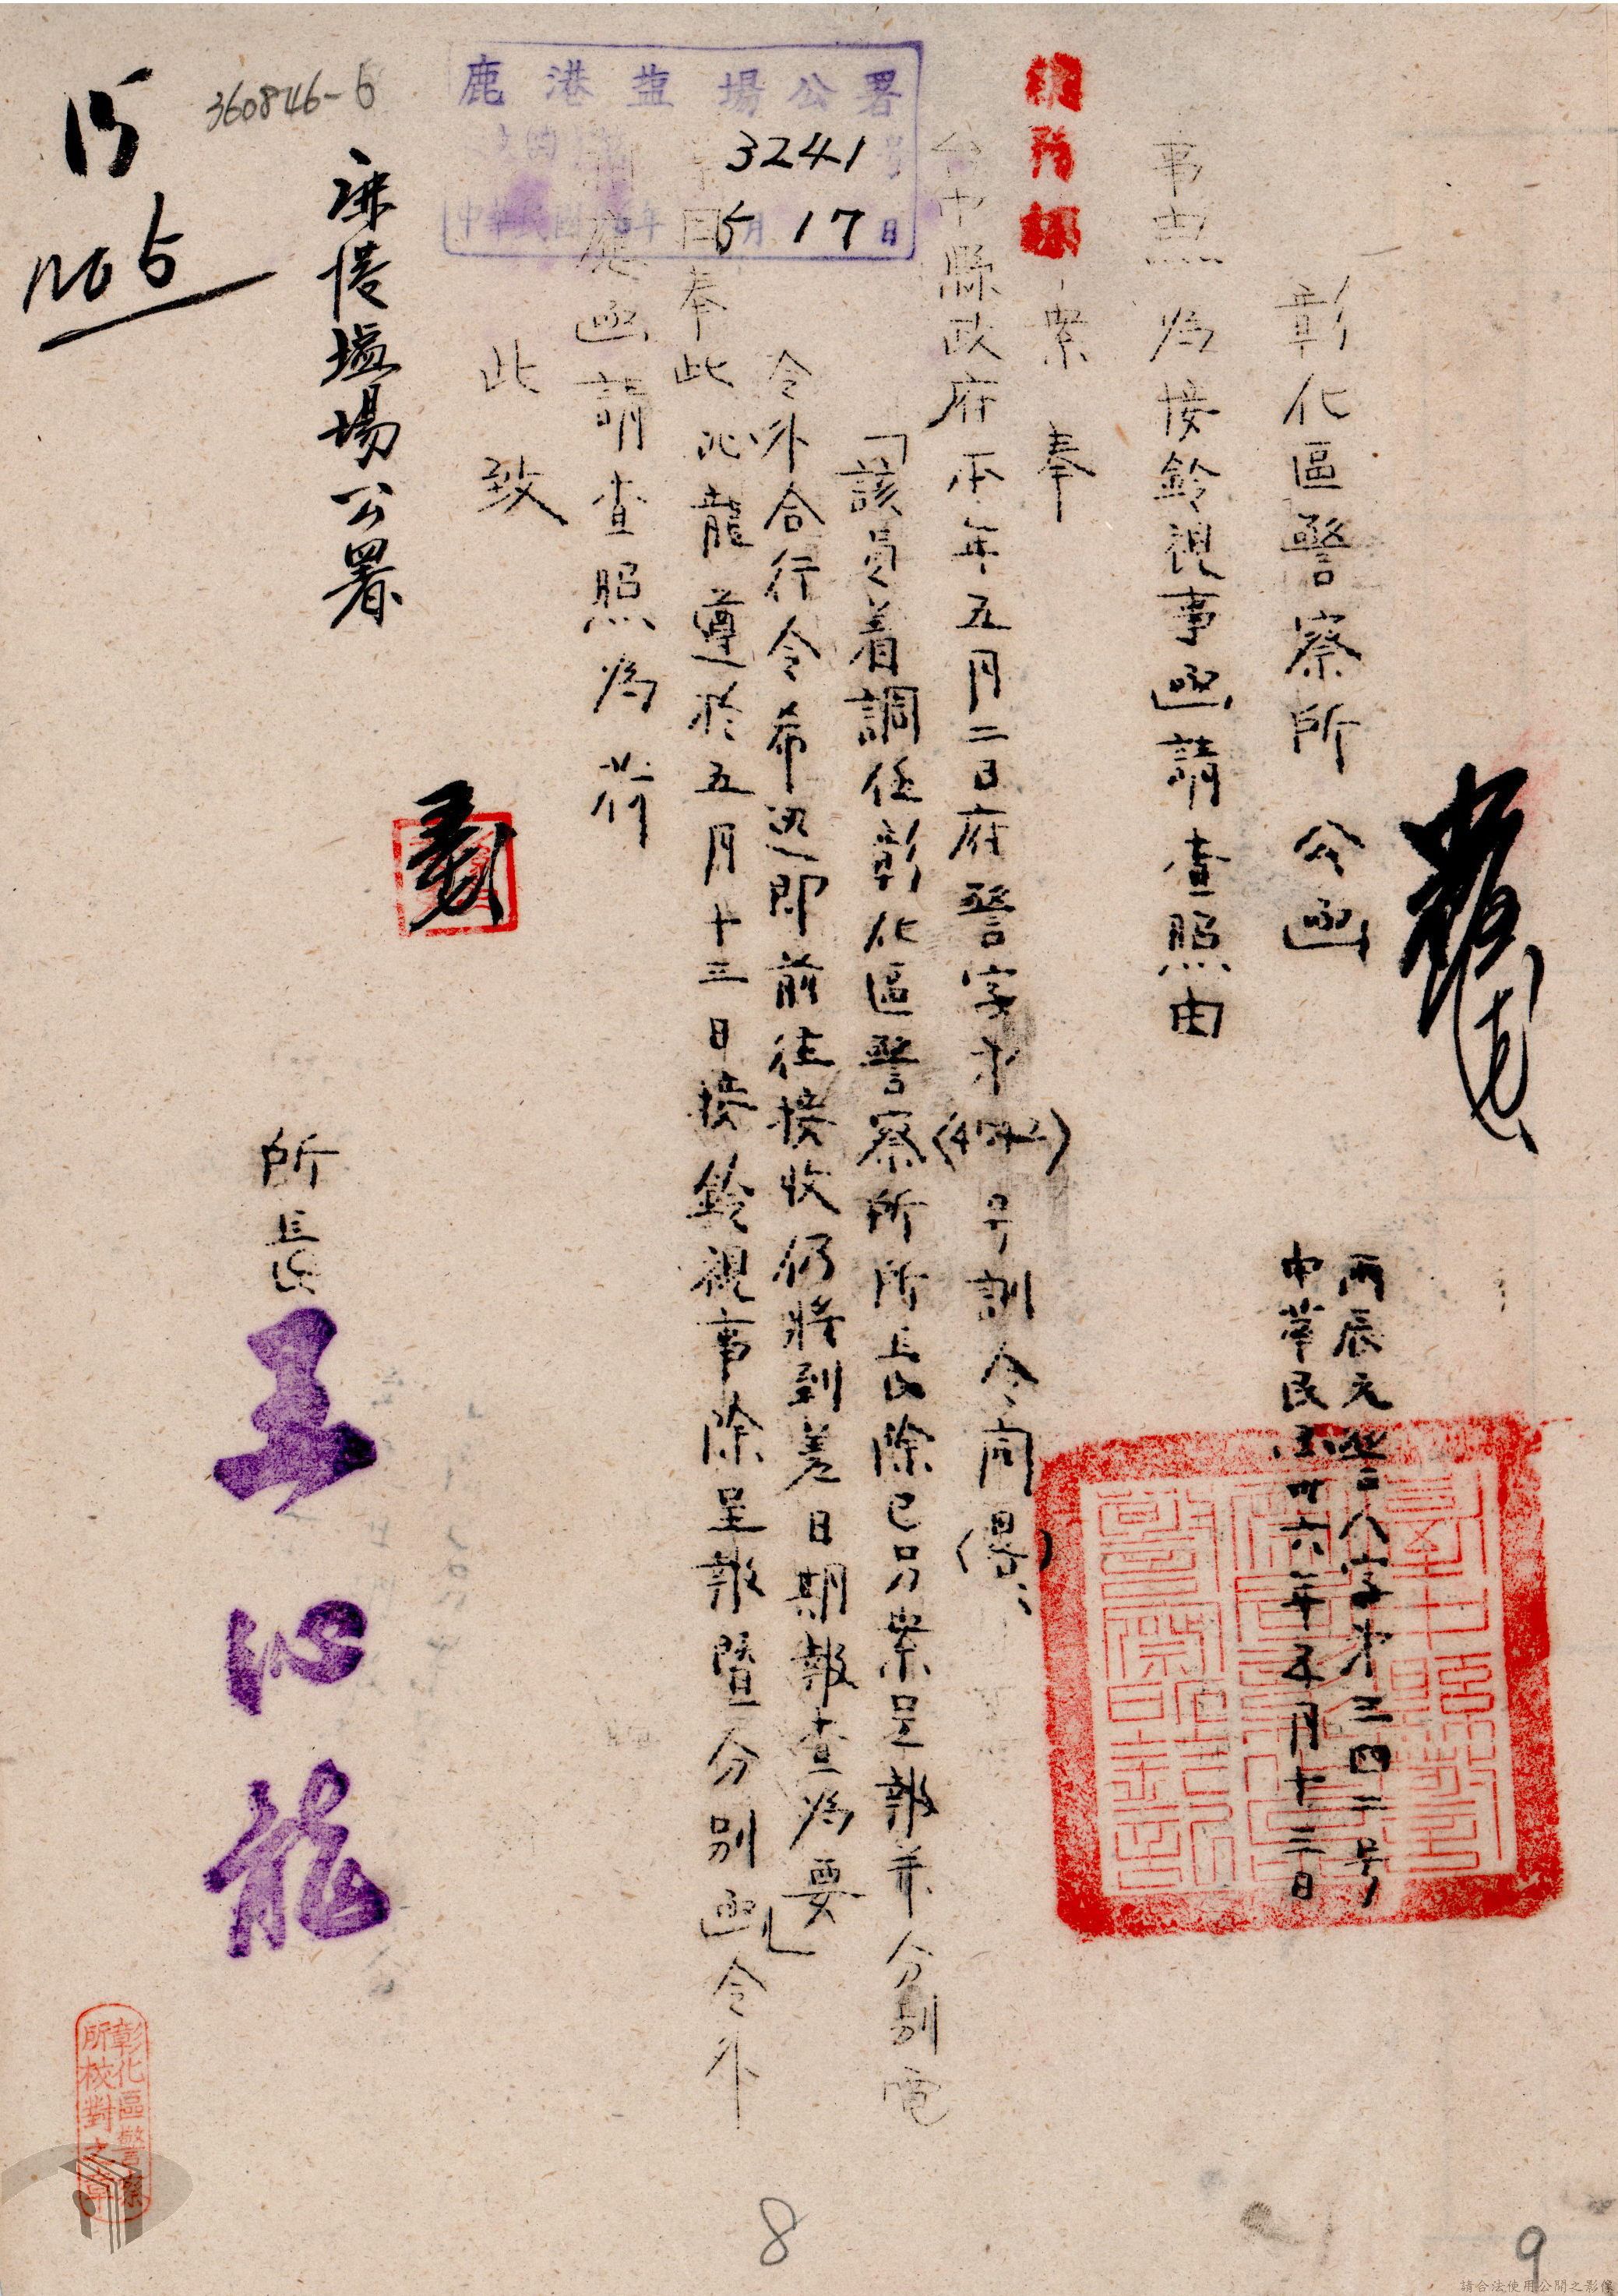 彰化區警察所 公函
丙辰元警八字第三四二号
中華民国卅六年五月十三日
事由為接鈐視事函請查照由
案奉
台中縣政府本年五月二日府警字第(4042)号訓令内(畧)、
「該員着調任彰化區警察所所長除已另案呈報并分別電
令外合行令希迅即前往接收仍將到差日期報查為要」
奉此沁龍遵於五月十三日接鈐視事除呈報暨分別函令外
相應函請查照為荷
此致
鹿港塩場公署
所長 王沁龍
鹿港塩場公署
3241号
中華民國 年5月17日
15
no 5
360846-6
彰化區警察
所校對之章
8
9
請合法使用公開之影像